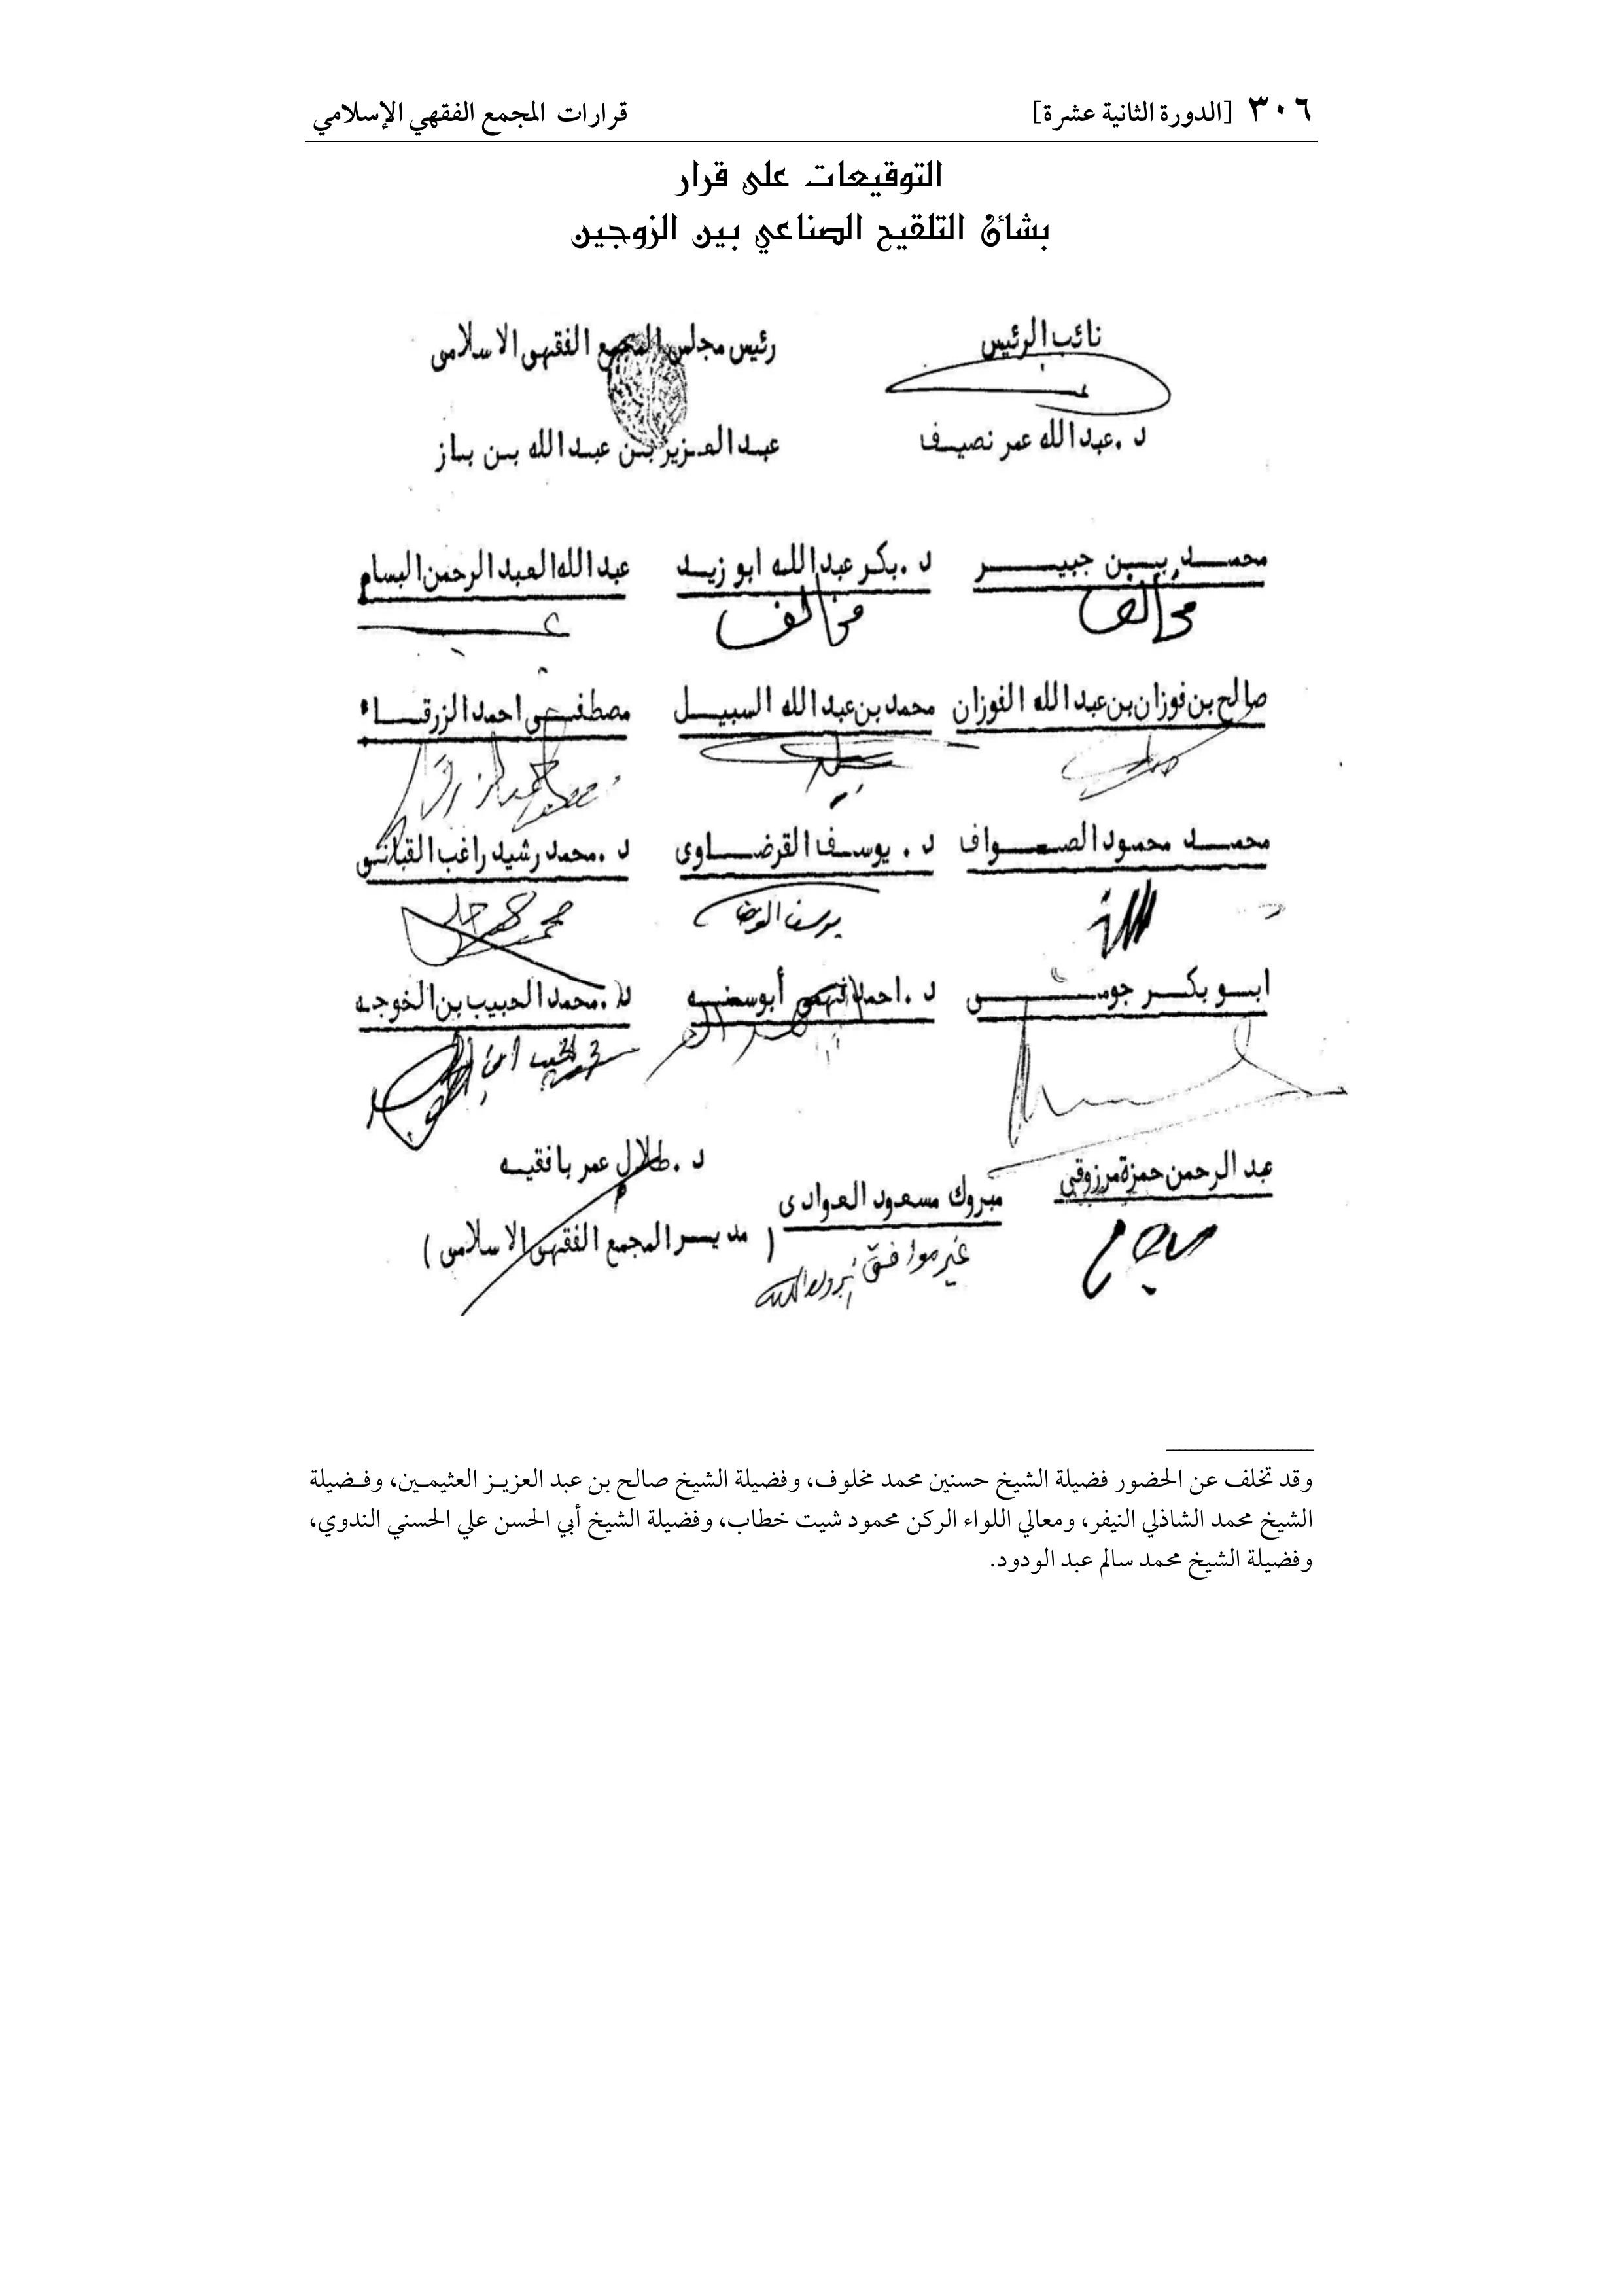 ٣٠٦ [الدورة الثانية عشرة] قرارات المجمع الفقهي الإسلامي
التوقيعات على قرار
بشأن التلقيح الصناعي بين الزوجين
نائب الرئيس رئيس مجلس المجمع الفقهى الاسلامى
د .عبدالله عمر نصيف عبدالعزيز بن عبدالله بن باز
محمد بن جبير د .بكر عبدالله ابو زيد عبدالله العبد الرحمن البسام
مخالف مخالف
صالح بن فوزان بن عبدالله الفوزان محمد بن عبدالله السبيل مصطفى احمد الزرقاء
محمد محمود الصواف د . يوسف القرضاوى د .محمد رشيد راغب القبانى
يوسف القرضا
ابو بكر جومى د .احمد فهمى أبو سنه د .محمد الحبيب بن الخوجه
عبد الرحمن حمزة مرزوقى مبروك مسعود العوادى د .طلال عمر بافقيه
غير موافق ( مدير المجمع الفقهى الاسلامى )
وقد تخلف عن الحضور فضيلة الشيخ حسنين محمد مخلوف، وفضيلة الشيخ صالح بن عبد العزيز العثيمين، وفضيلة
الشيخ محمد الشاذلي النيفر، ومعالي اللواء الركن محمود شيت خطاب، وفضيلة الشيخ أبي الحسن علي الحسني الندوي،
وفضيلة الشيخ محمد سالم عبد الودود.